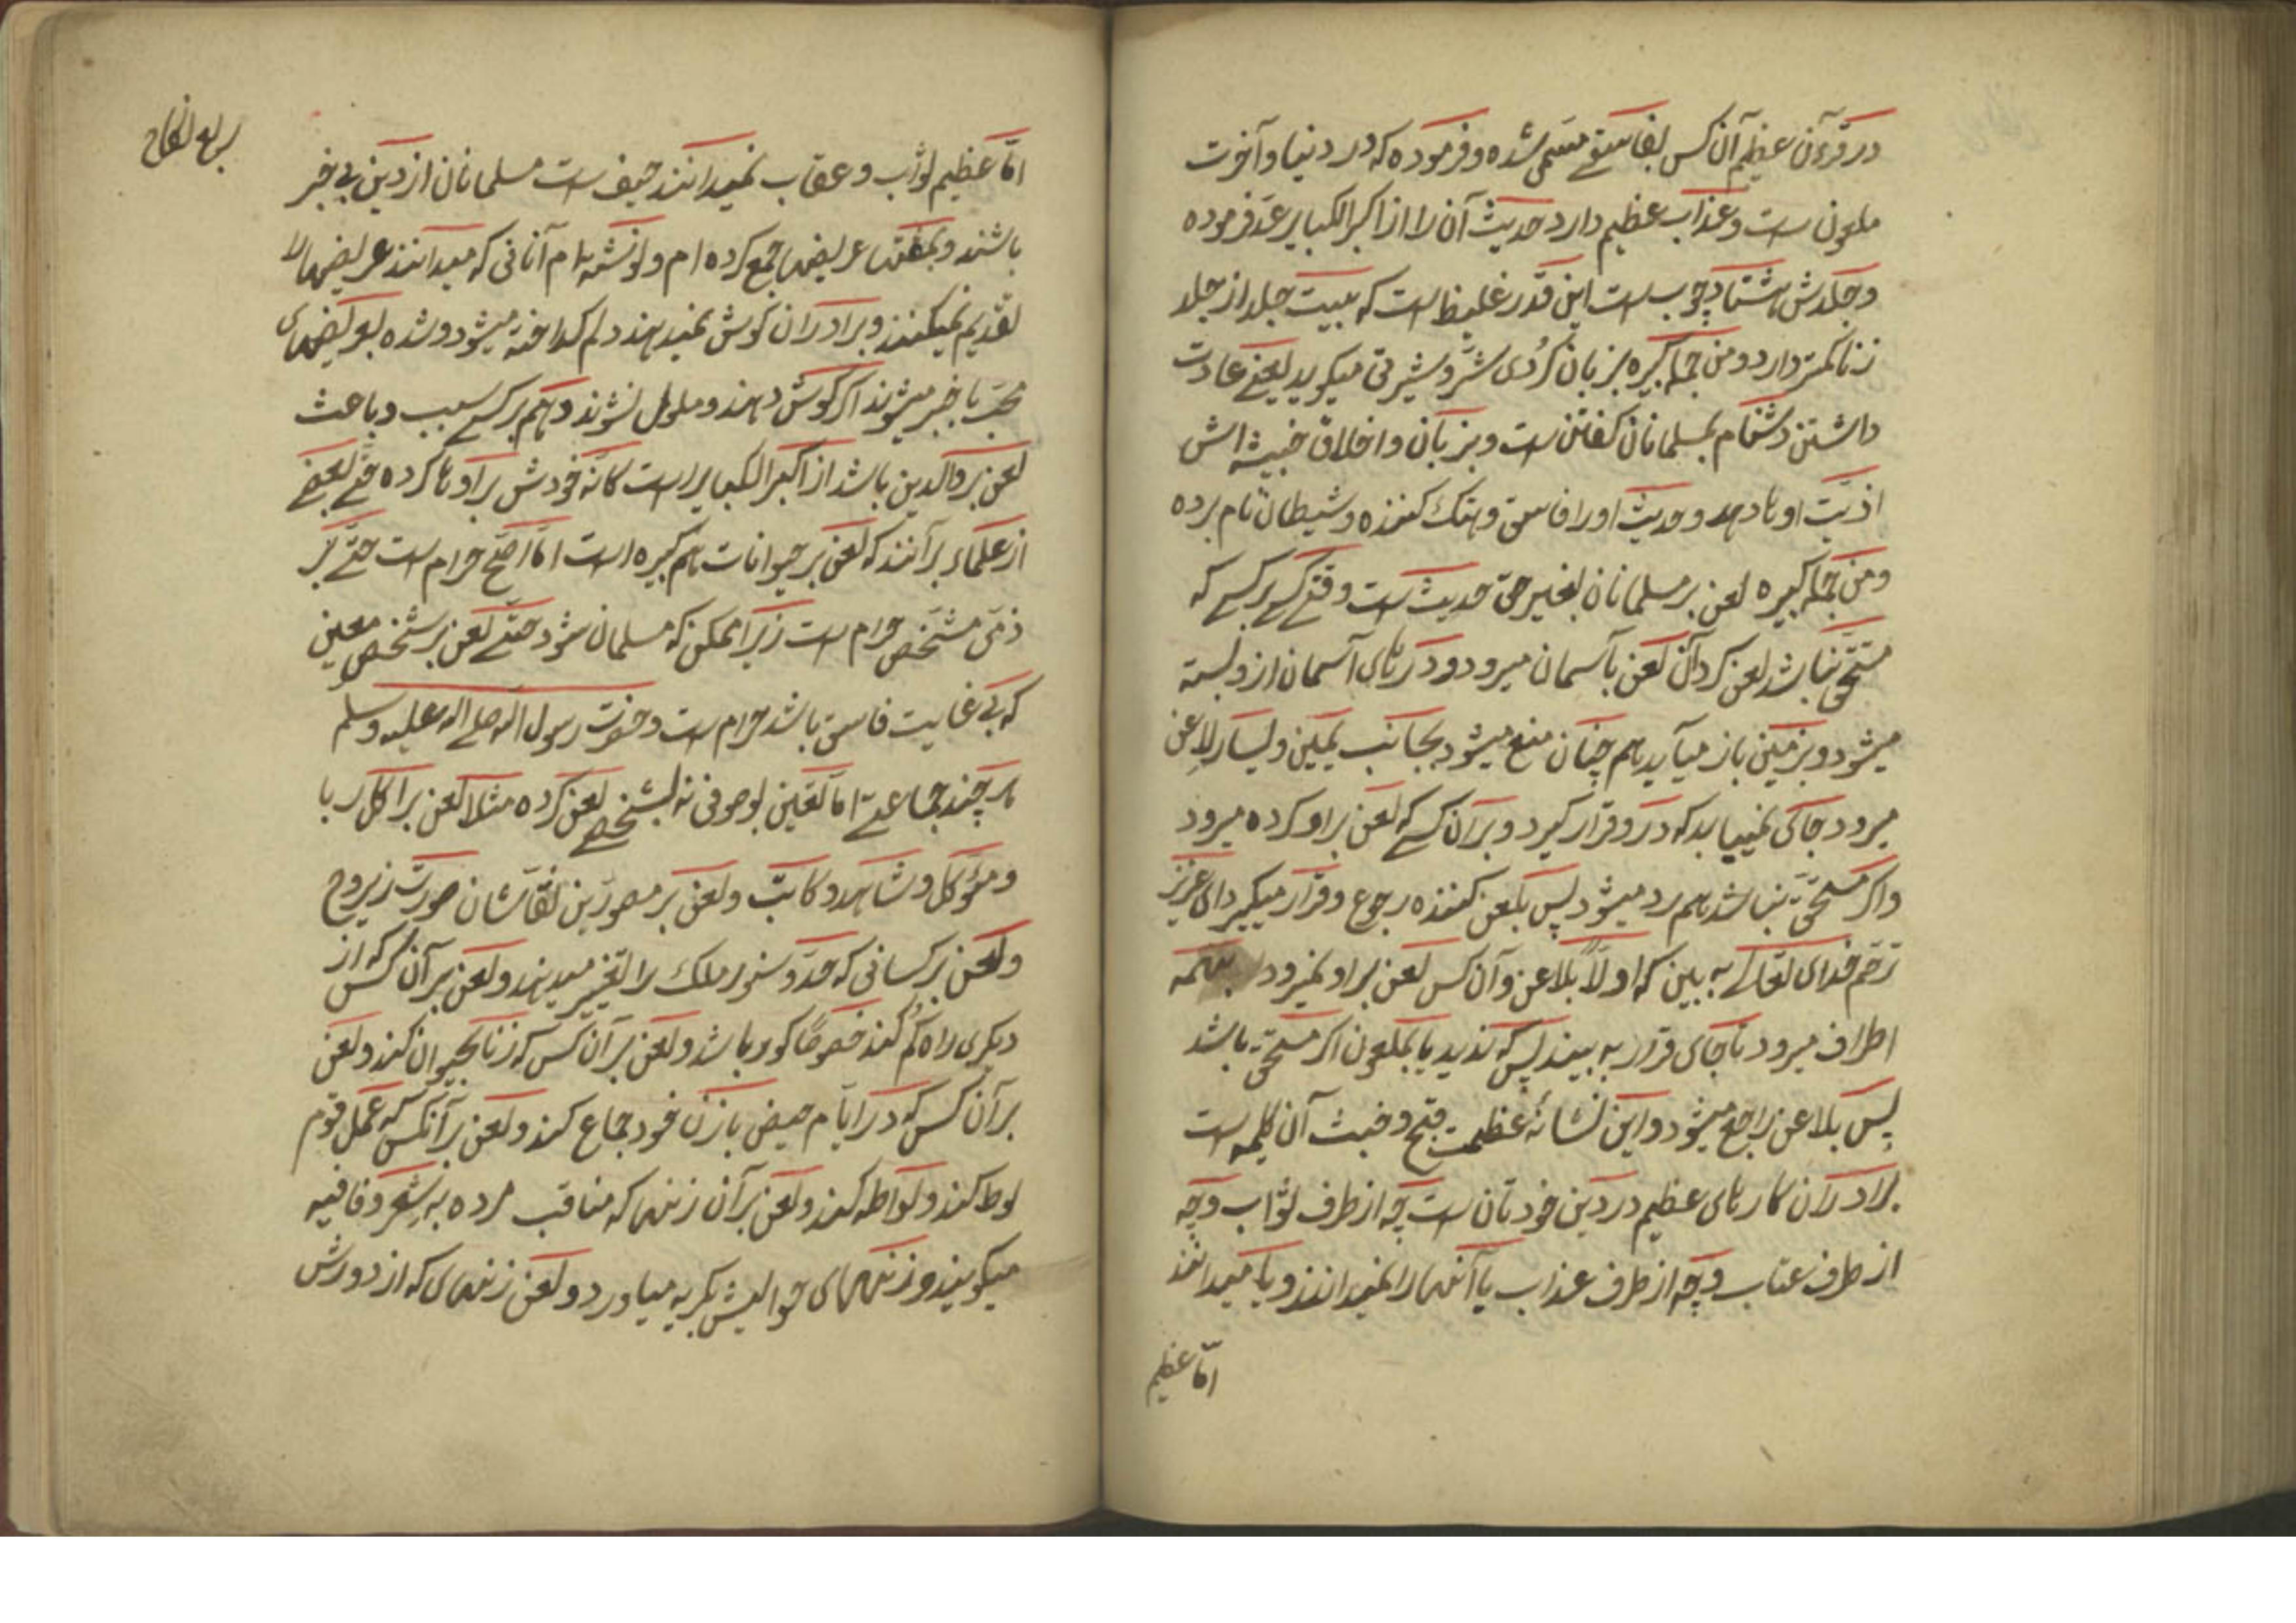 در قرآن عظیم آن کس بفاسقے مسمی شده و فرموده که در دنیا و آخرت
ملعون است و عذاب عظیم دارد حدیث آن را از اکبر الکبایر عد فرموده
و جلدش هشتاد چوب است این قدر غلیظ است که بیست جلد از جلد
زنا کمتر دارد و من جمله کبیره بزبان کُردی شَرّ و شیرتی میکوید یعنے عادت
داشتن دشنام بمسلمانان کفتن است و بزبان و اخلاق خبیثه اش
اذیّت اوها دهد و حدیث او را فاسق و هتک کننده و شیطان نام برده
و من جمله کبیره لعن بر مسلمانان بغیر حق حدیث است وقتے کسے بر کسے که
مستحَقّ نباشد لعن کرد آن لعن بآسمان میرود و درهای آسمان ازو بسته
میشود و بزمین باز میآید هم چنان منع میشود بجانب یمین و یسار لاعن
میرود جاکی نمییابد که درو قرار کیرد و بر آن کسے که لعن بر او کرده میرود
و اکر مستحَقّ نباشد هم رد میشود پس بلعن کننده رجوع و قرار میکیرد ای عزیز
ترحّم خدای تعالے به بین که اولاً بلاعن و آن کس لعن بر او نمیرود بهمه
اطراف میرود تا جای قرار به بیند پس که ندید یا بملعون اکر مستحق باشد
پس بلاعن راجع میشود و این نشانهٔ عظمت قبح و خبث آن کلمه است
برادران کارهای عظیم در دین خودتان است چه از طرف ثواب و چه
از طرف عتاب و چه از طرف عذاب یا آنها را نمیدانند و یا میدانند
امّا عظیم
امّا عظیم ثواب و عقاب نمیدانند حیف است مسلمانان از دین بی خبر
باشند و بمفتها عریضها جمع کرده ام و نوشته ام آنانی که میدانند عریضها
تقدیم نمیکنند و برادران کوش نمیدهند دلم کداخته میشود و شده بعریضهای
محبّ با خبر میشوند اکر کوش دهند و ملول نشوند و هم بر کسے سبب و باعث
لعن بر والدین باشد از اکبر الکبایر است کانّه خودش بر اوها کرده حتّے بعضے
از علماء بر آنند که لعن بر حیوانات هم کبیره است امّا اصَحّ حرام است حتّے بر
ذمّی مشخّص حرام است زیرا ممکن که مسلمان شود حتّے لعن بر شخص معین
که بی غایت فاسق باشد حرام است و حضرت رسول الله صلے الله علیه و سلم
هر چند جماعتے امّا لعّین بوصوفی نه بشخصے لعن کرده مثلا لعن بر آکل ربا
و مؤکل و شاهد و کاتب و لعن بر مصورین نقّاشان صورت زیروح
و لعن بر کسانی که حدّ و سنور ملک را تغییر میدهند و لعن بر آن کس که از
دیکری راه کُم کند خصوصًا کور باشد و لعن بر آن کس که زنا بحیوان کند و لعن
بر آن کس که در ایّام حیض با زن خود جماع کند و لعن بر آنکس که عمل قوم
لوط کند و لواطه کند و لعن بر آن زنها که مناقب مرده به شعر و قافیه
میکویند و زنهای حوالیش بکریه میاورد و لعن زنهای که از دورش